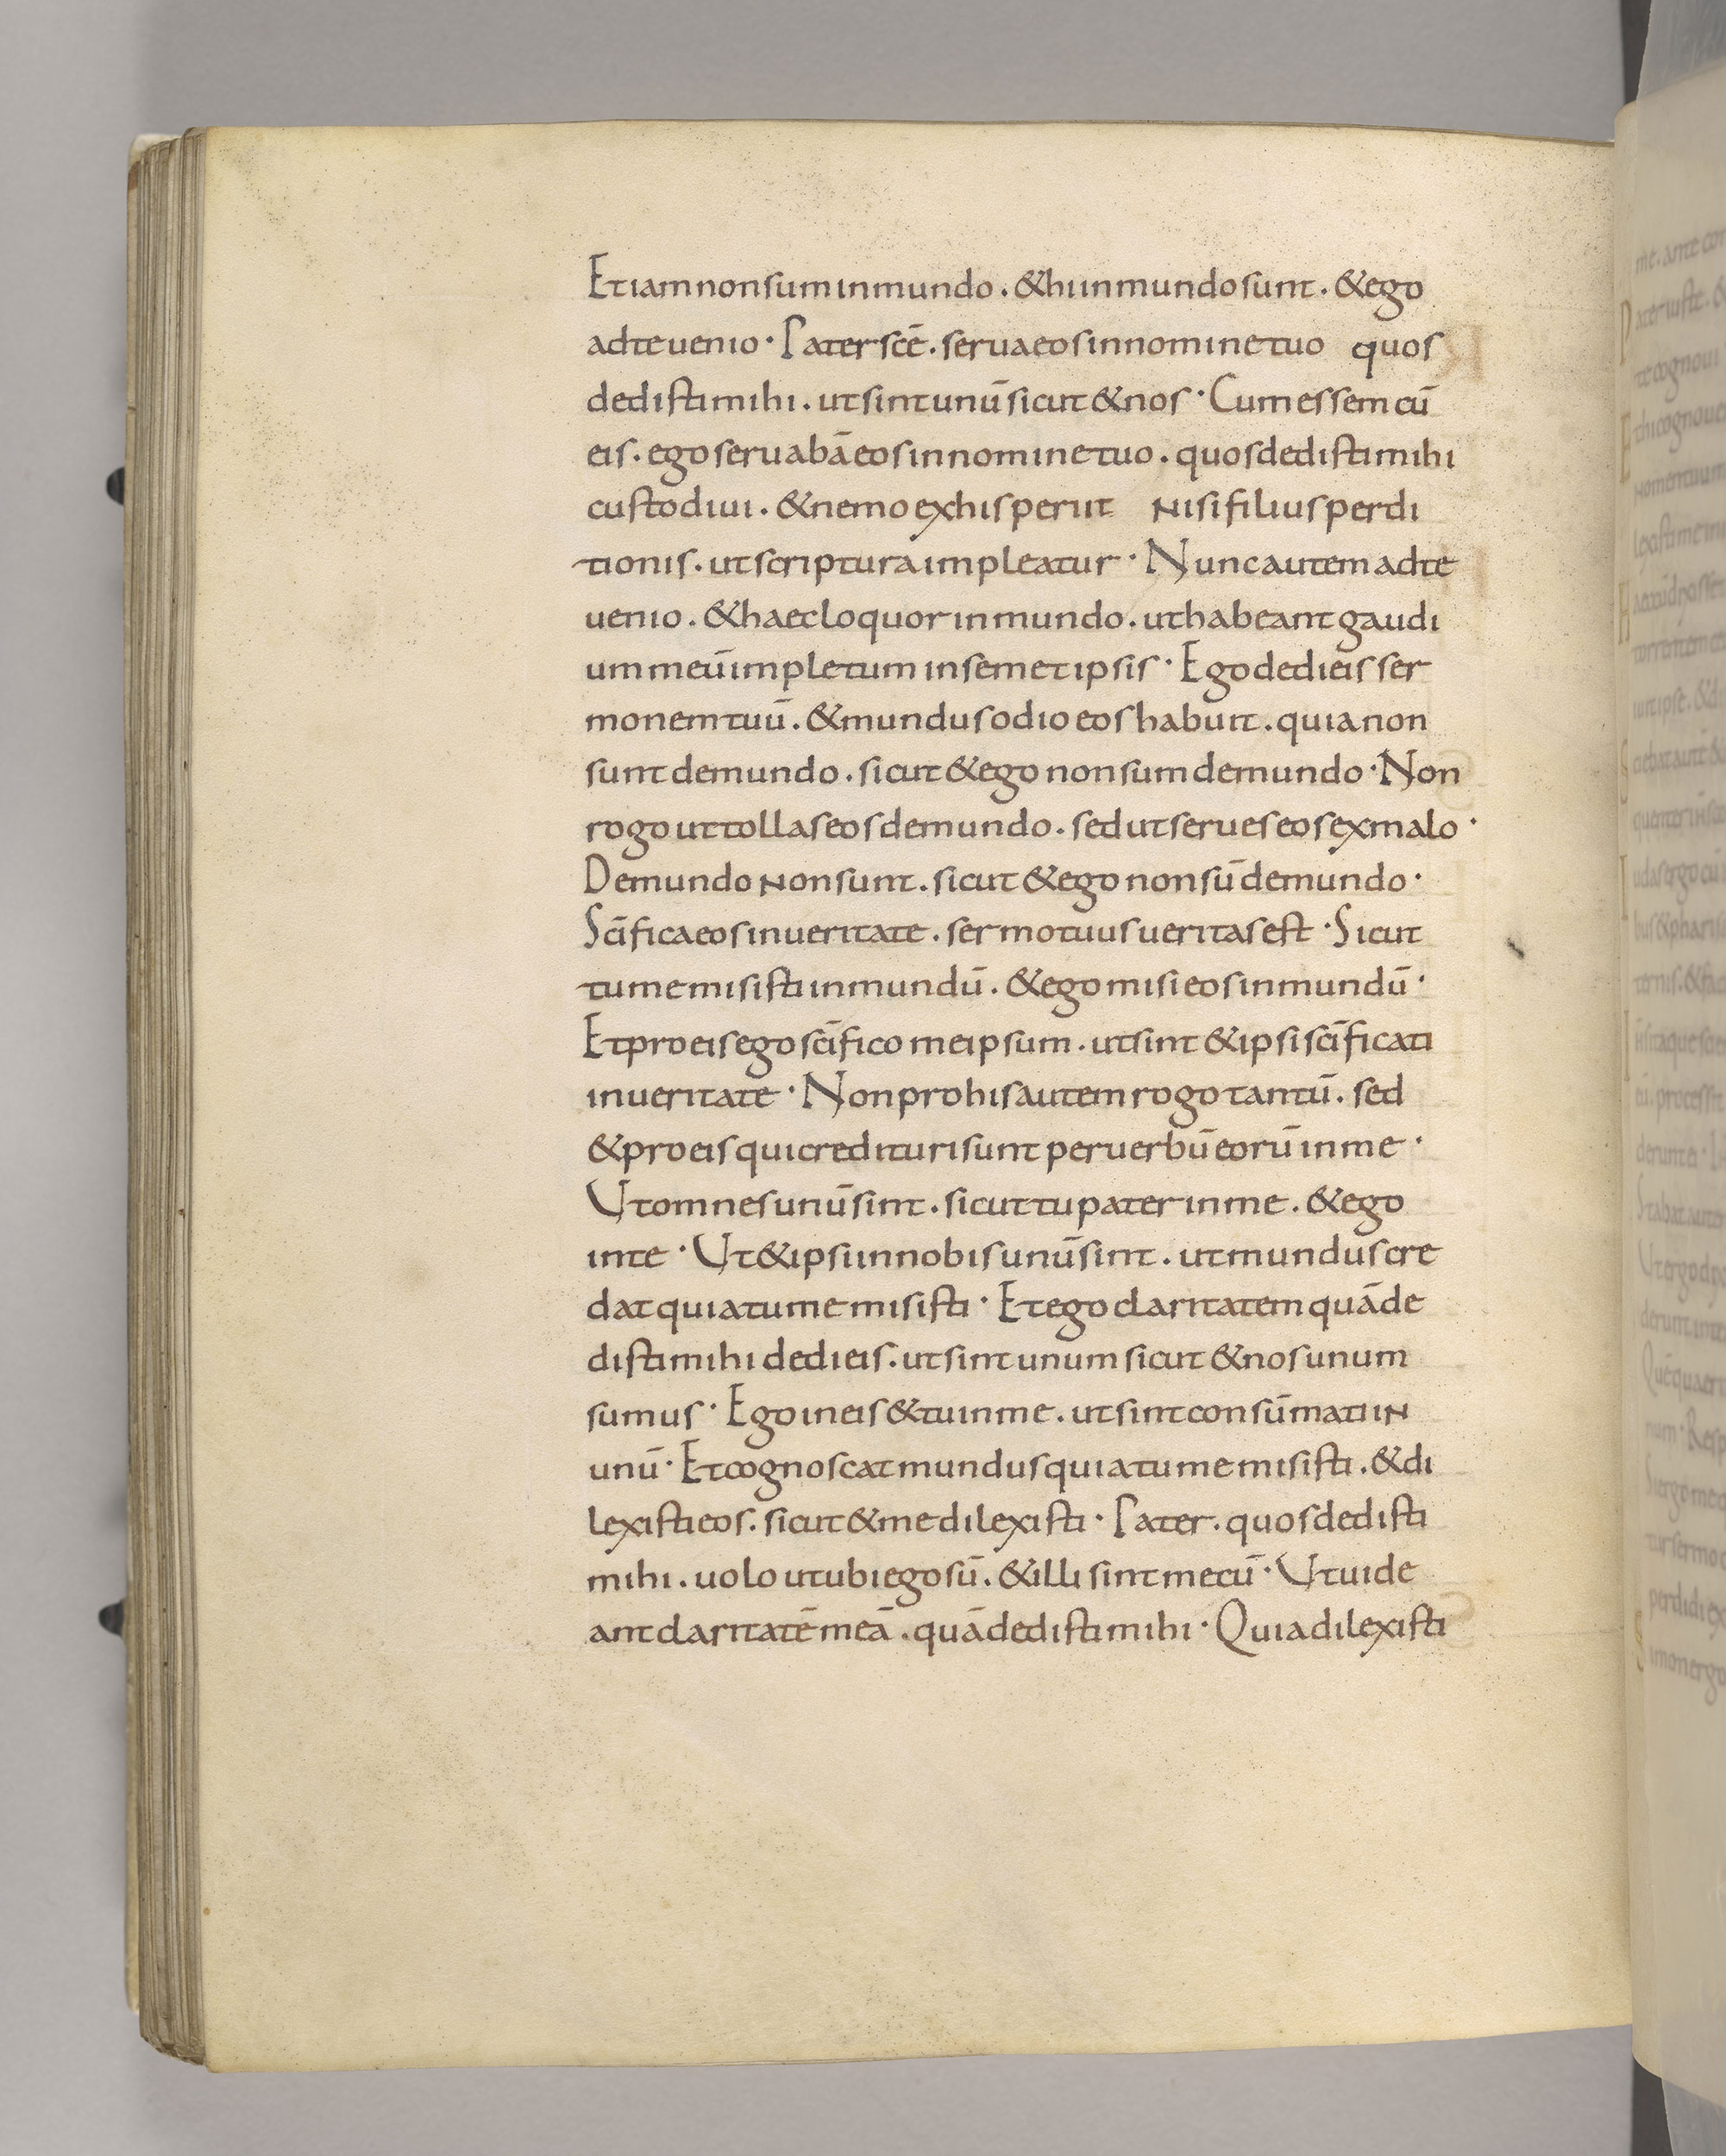 Et iam non sum in mundo . & hi in mundo sunt . & ego
ad te uenio · Pater scē . serua eos in nomine tuo quos
dedisti mihi . ut sint unū sicut & nos · Cum essem cū
eis . ego seruabā eos in nomine tuo . quos dedisti mihi
custodiui . & nemo ex his periit nisi filius perdi
tionis . ut scriptura impleatur · Nunc autem ad te
uenio . & haec loquor in mundo . ut habeant gaudi
um meū impletum in semet ipsis · Ego dedi eis ser
monem tuū . & mundus odio eos habuit . quia non
sunt de mundo . sicut & ego non sum de mundo · Non
rogo ut tollas eos de mundo . sed ut serues eos ex malo ·
De mundo non sunt . sicut & ego non sū de mundo ·
Scīfica eos in ueritate . sermo tuus ueritas est · Sicut
tu me misisti in mundū . & ego misi eos in mundū ·
Et pro eis ego scīfico me ipsum . ut sint & ipsi scīficati
in ueritate · Non pro his autem rogo tantū . sed
& pro eis qui credituri sunt per uerbū eorū in me ·
Ut omnes unū sint . sicut tu pater in me . & ego
in te · Ut & ipsi in nobis unū sint . ut mundus cre
dat quia tu me misisti · Et ego claritatem quā de
disti mihi dedi eis . ut sint unum sicut & nos unum
sumus · Ego in eis & tu in me . ut sint consūmati in
unū · Et cognoscat mundus quia tu me misisti . & di
lexisti eos . sicut & me dilexisti · Pater . quos dedisti
mihi . uolo ut ubi ego sū . & illi sint mecū · Ut uide
ant claritatē meā . quā dedisti mihi · Quia dilexisti